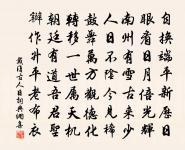 自換端平新曆日
眼看日月倍光輝
南州有雪古來少
人日不陰今見稀
鼓舞萬方觀德化
轉移一世屬天機
朝廷有道吾君聖
辦作升平老布衣
戴復古人日